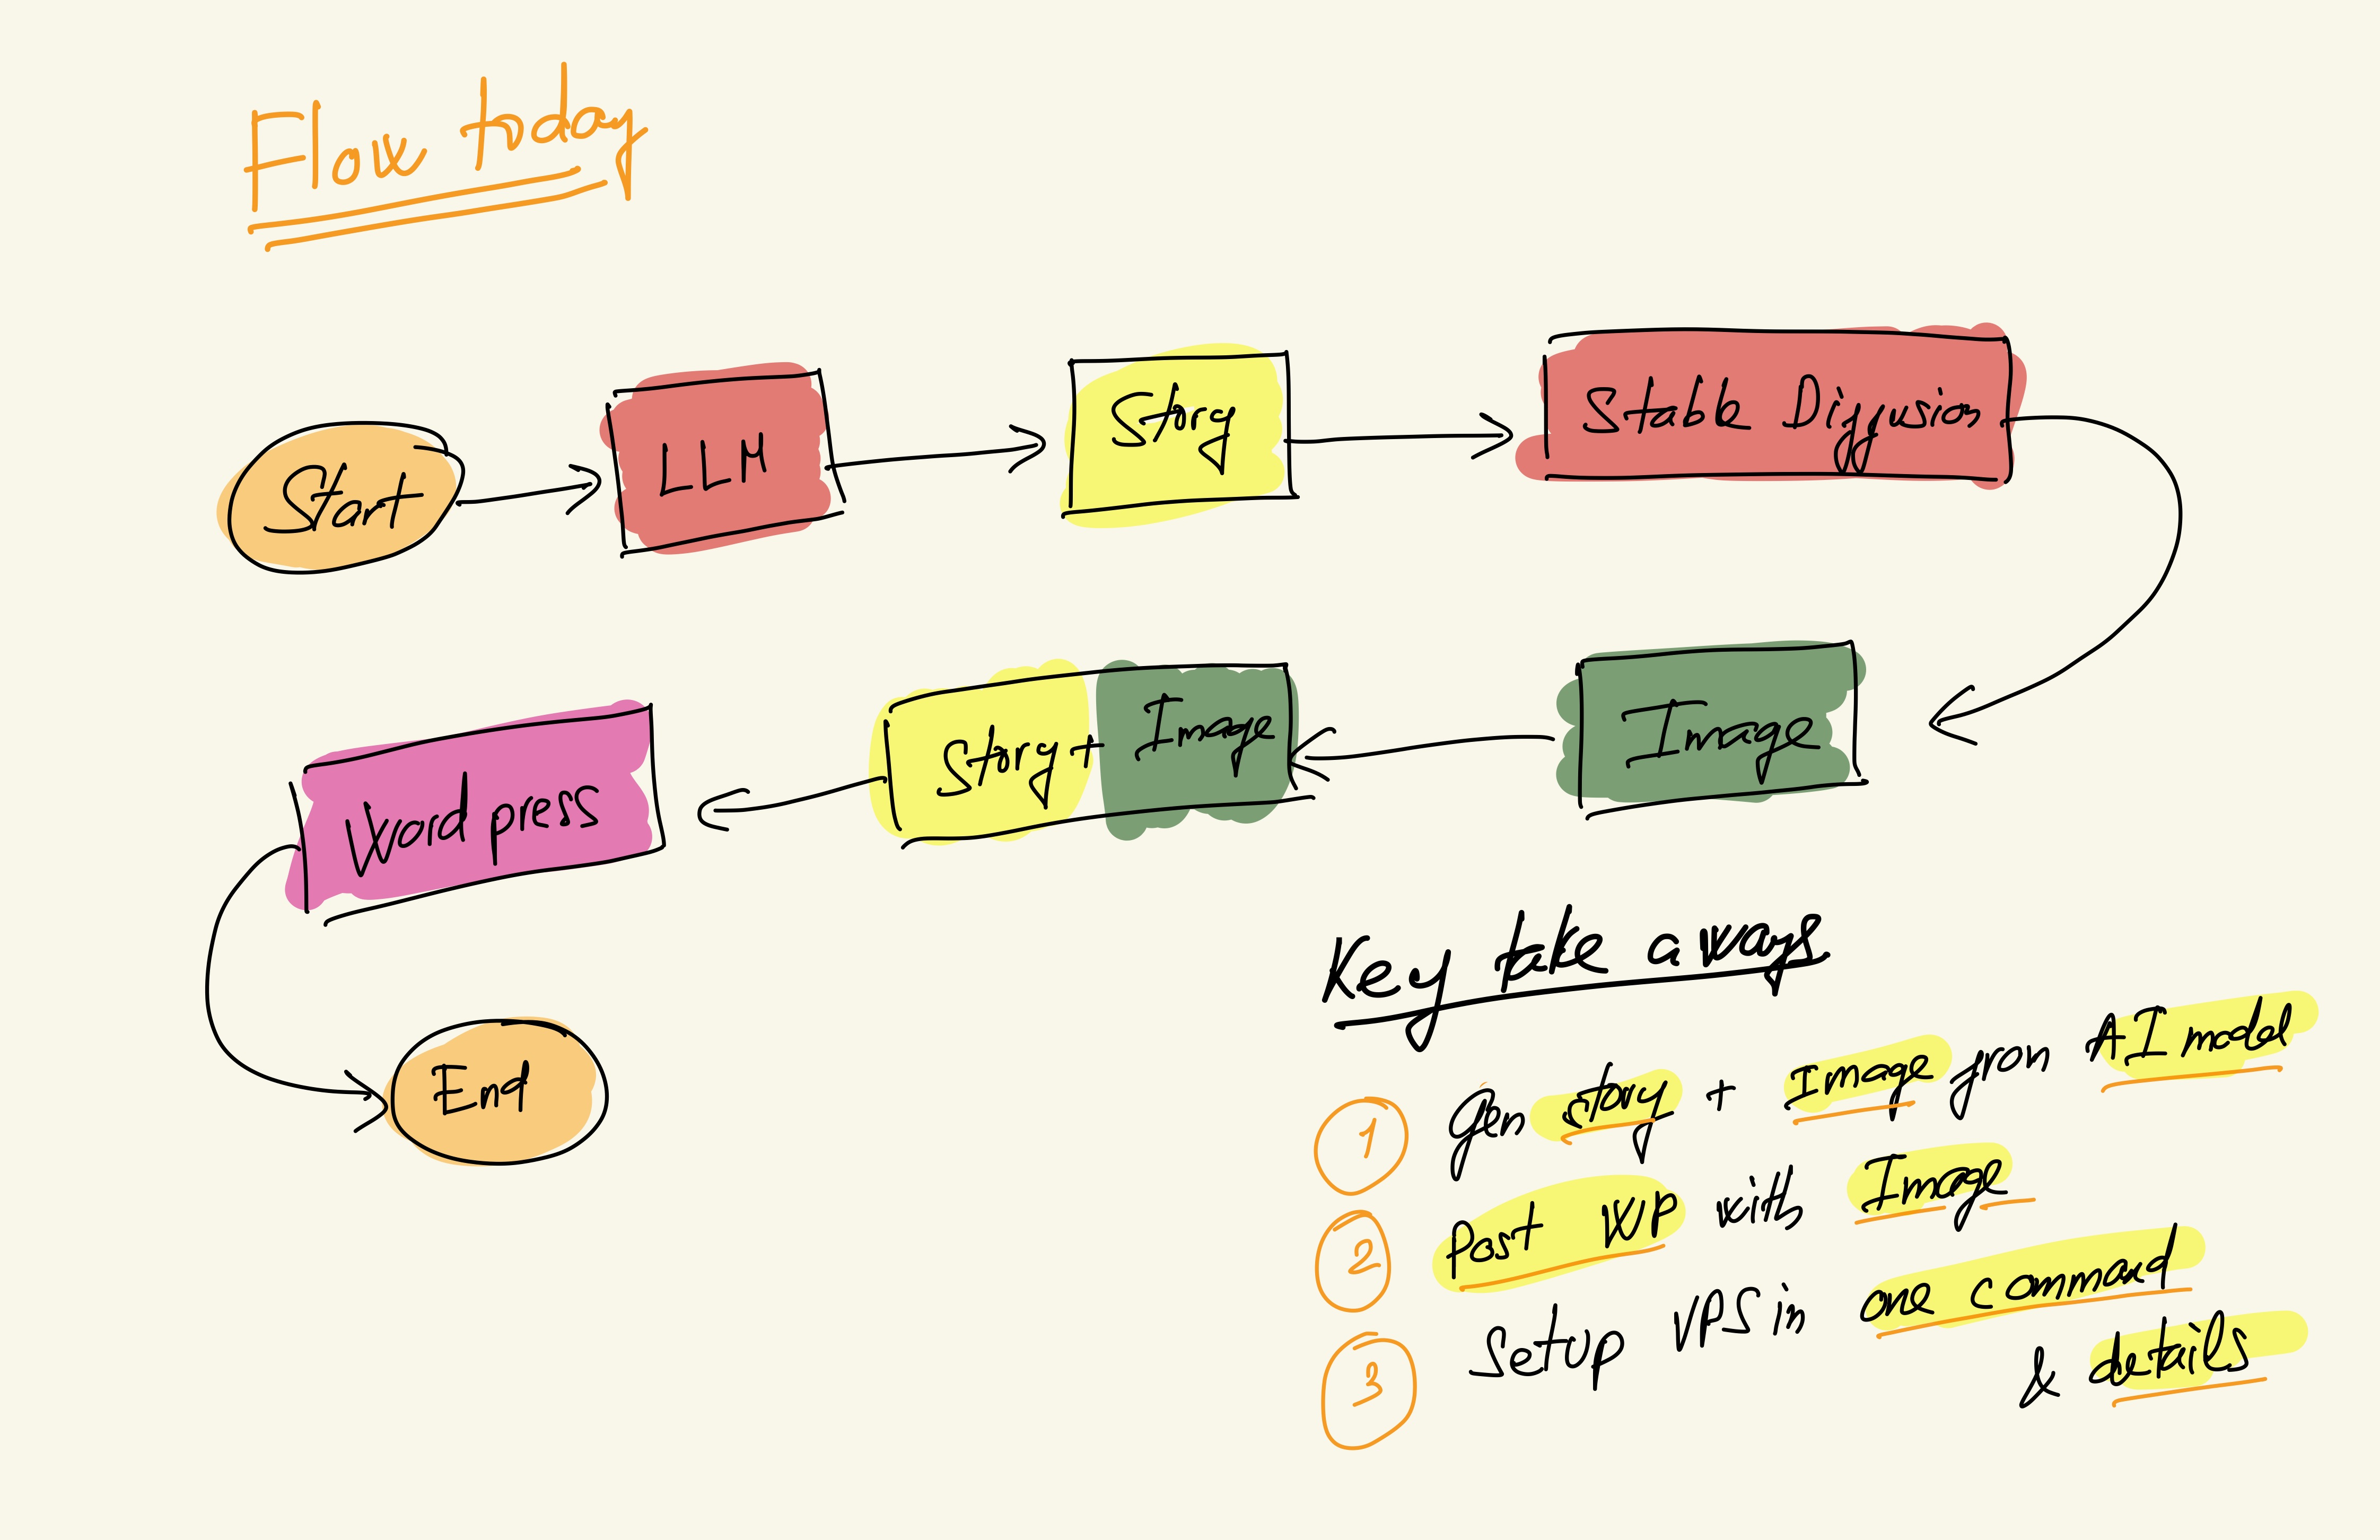 Flow today
Start
LLM
Story
Stable Diffusion
Image
Story + Image
Wordpress
End
Key take aways
1 Gen story + Image from AI model
2 Post WP with Image
3 Setup VPS in one command
& details